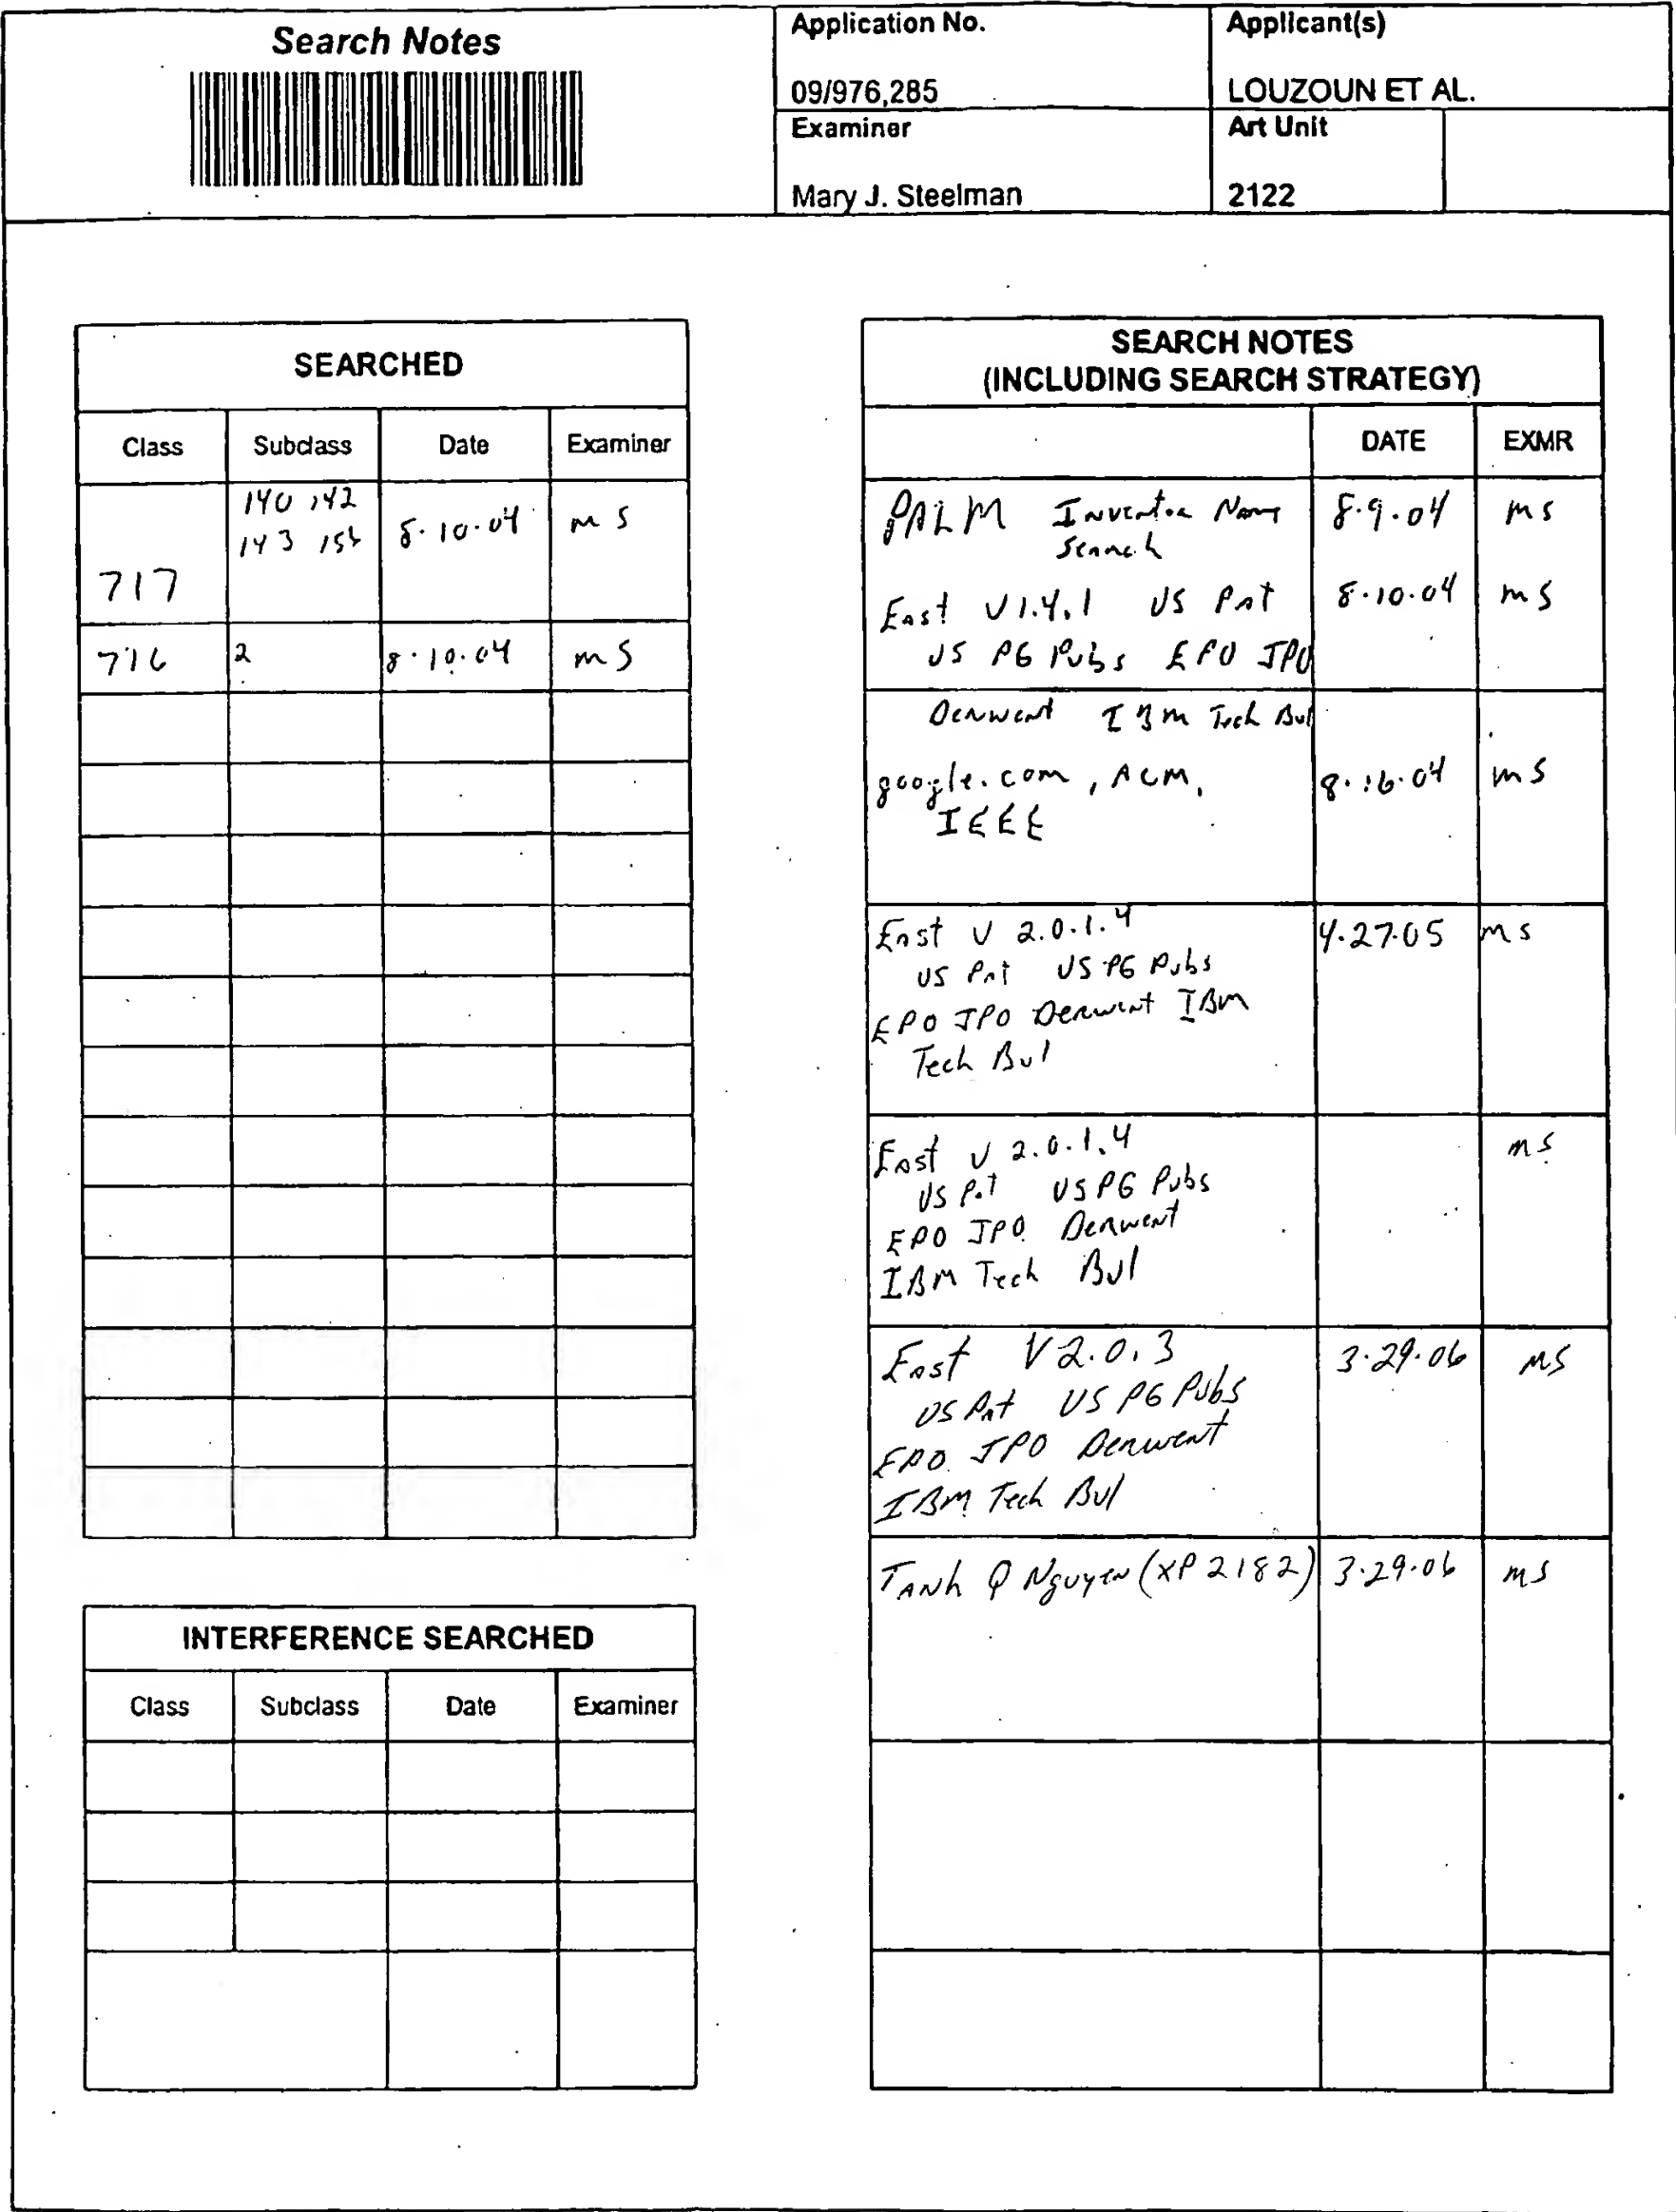 Search Notes
Application No.
Applicant(s)
09/976,285
LOUZOUN ET AL.
Examiner
Art Unit
Mary J. Steelman
2122
SEARCHED
Class Subclass Date Examiner
717
140 142
143
8.10.04 ms
716 2 8.10.04 ms
INTERFERENCE SEARCHED
Class Subclass Date Examiner
SEARCH NOTES
(INCLUDING SEARCH STRATEGY)
DATE EXMR
PALM Inventor Name 8.9.04 ms
Search
East V1.4.1 US Pat 8.10.04 ms
US PG Pubs EPO JPO
Derwent IBM Tech Bul
google.com, ACM, 8.16.04 ms
IEEE
East V 2.0.1.4 4.27.05 ms
US Pat US PG Pubs
EPO JPO Derwent IBM
Tech Bul
East V 2.0.1.4 ms
US Pat US PG Pubs
EPO JPO Derwent
IBM Tech Bul
East V2.0.3 3.29.06 MS
US Pat US PG Pubs
EPO JPO Derwent
IBM Tech Bul
TANh Q Nguyen (XP 2182) 3.29.06 ms